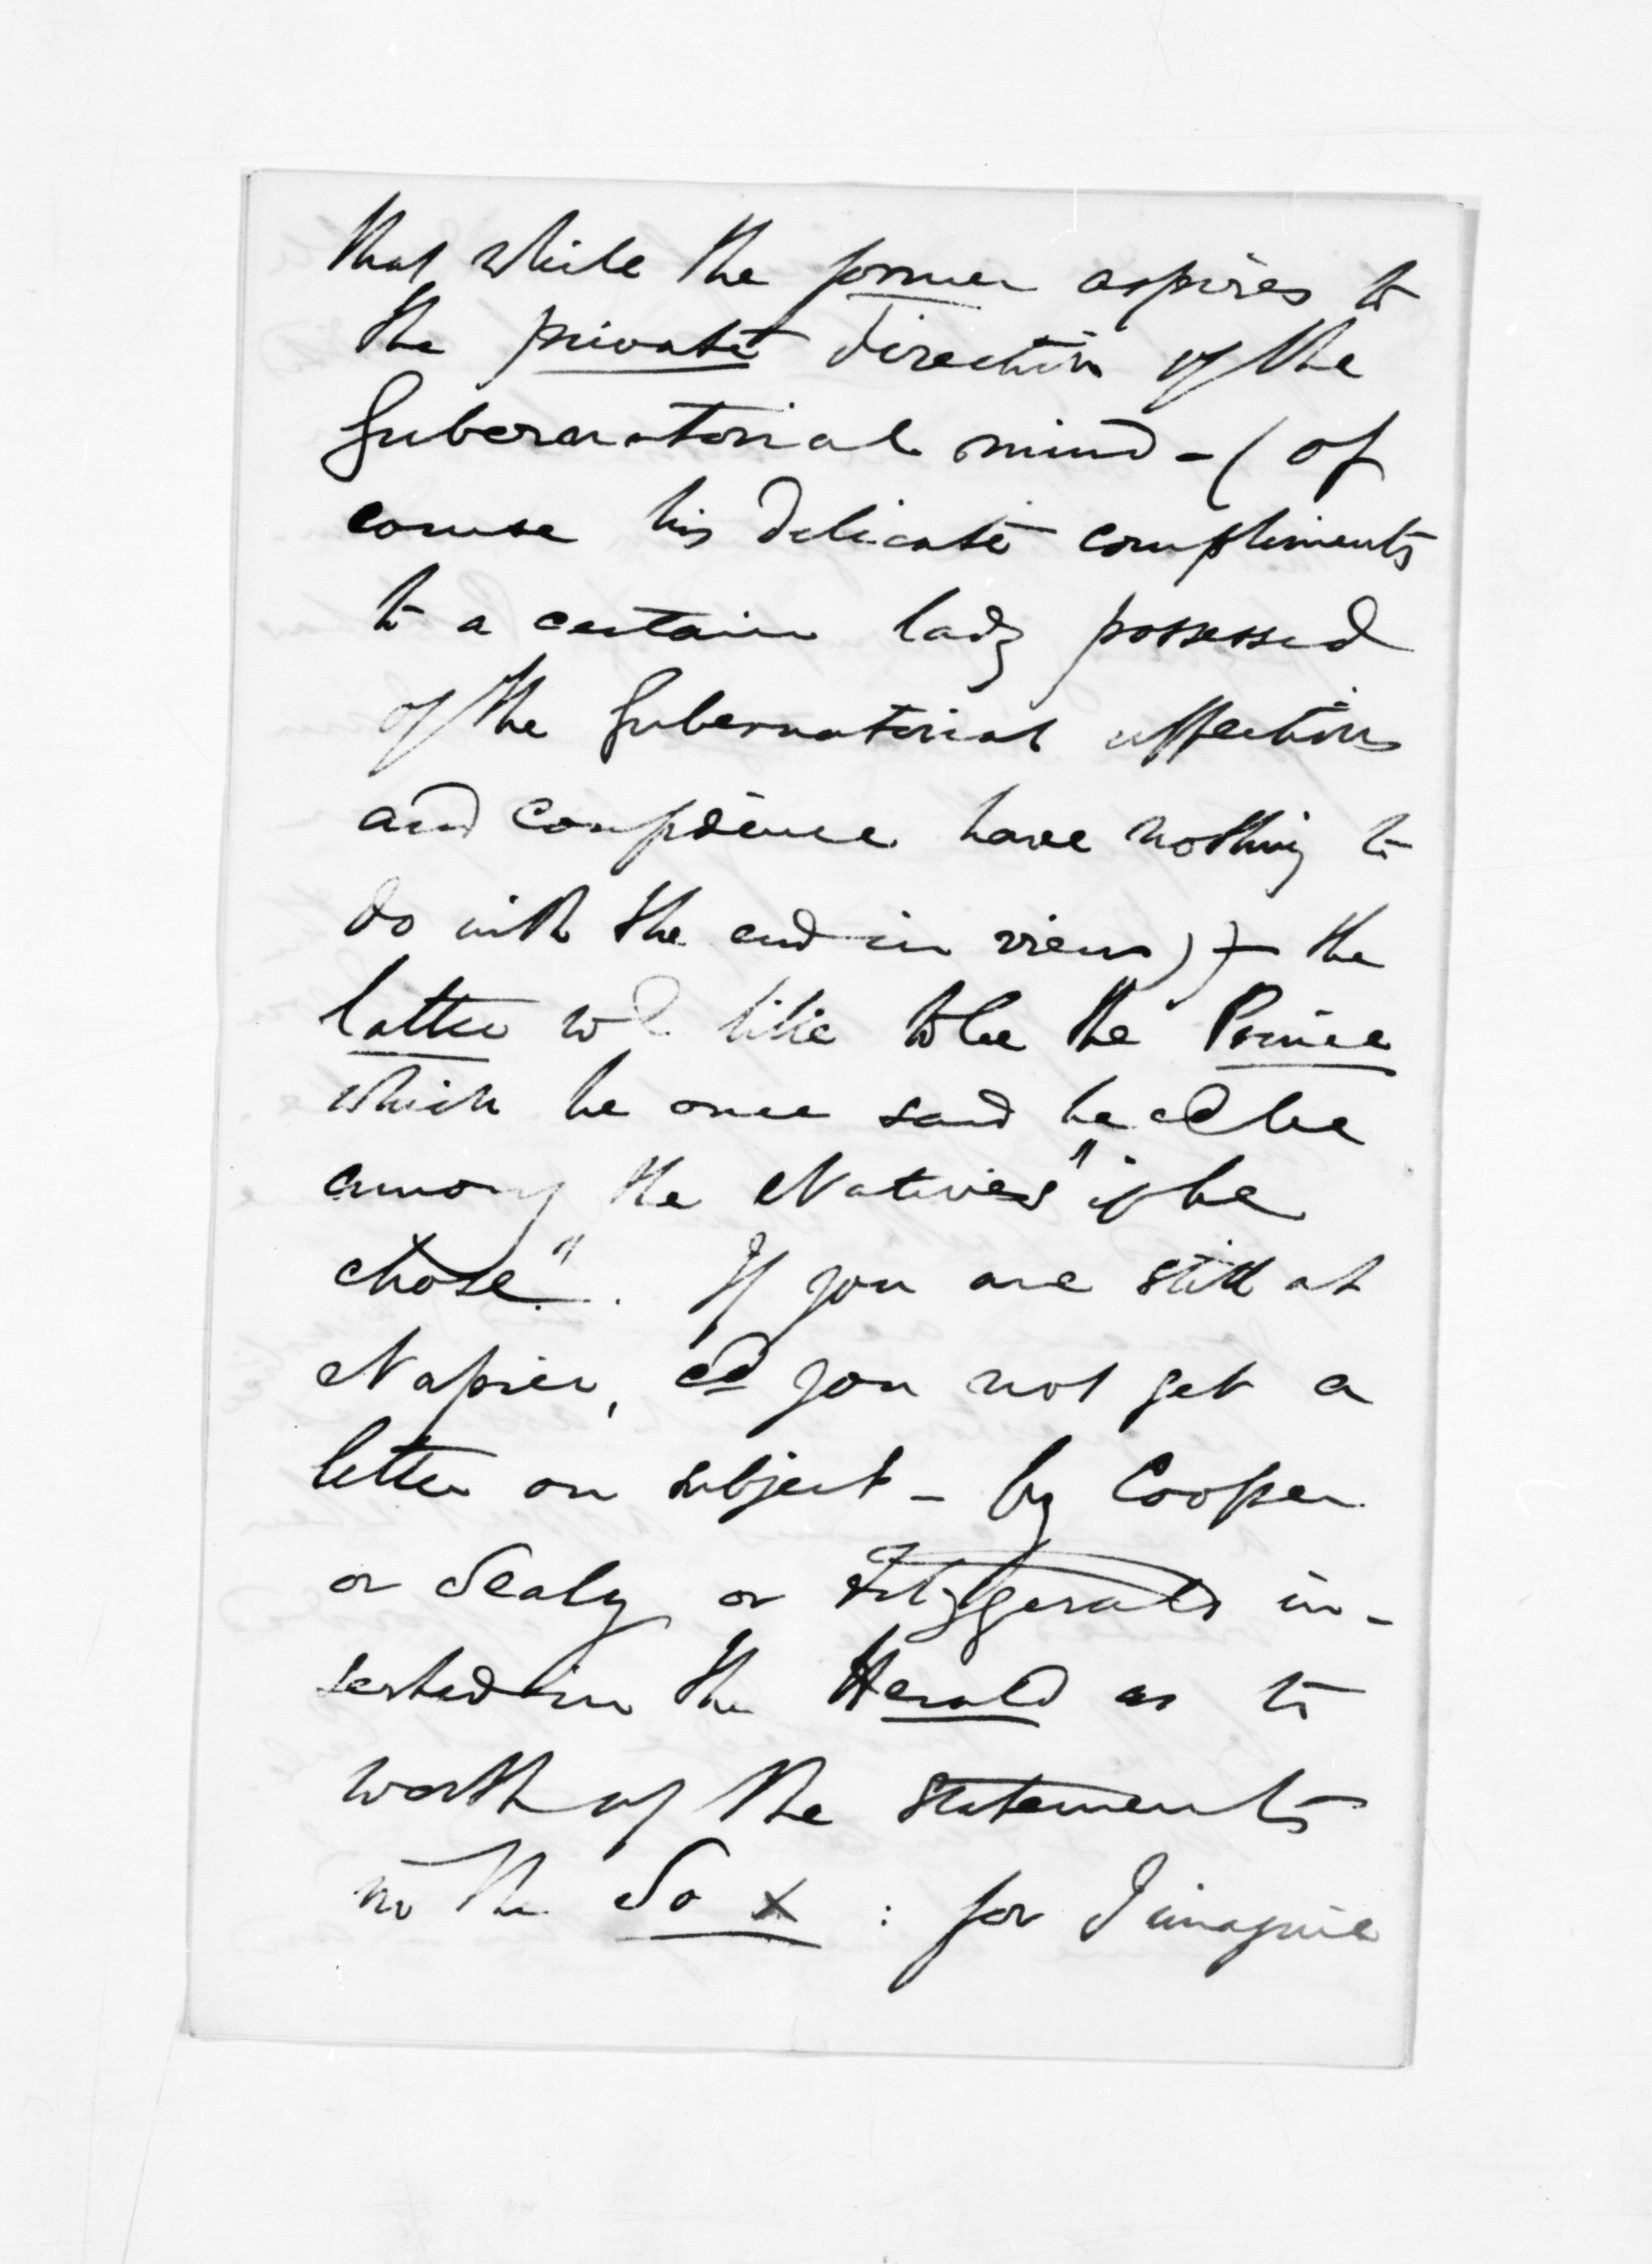 that while the former aspires to
the private direction of the
Gubernatorial mind - (of
course his delicate compliments
to a certain lady possessed
of the Gubernatorial affections
and confidence have nothing to
do with the end in view) - the
latter wd like to be the Prince
which he once said he cd be
among the Natives "if he
chose". If you are still at
Napier, cd you not get a
letter on subject - by Cooper
or Sealy or Fitzgerald in-
serted in the Herald as to
worth of the statements
in the So X : for I imagine